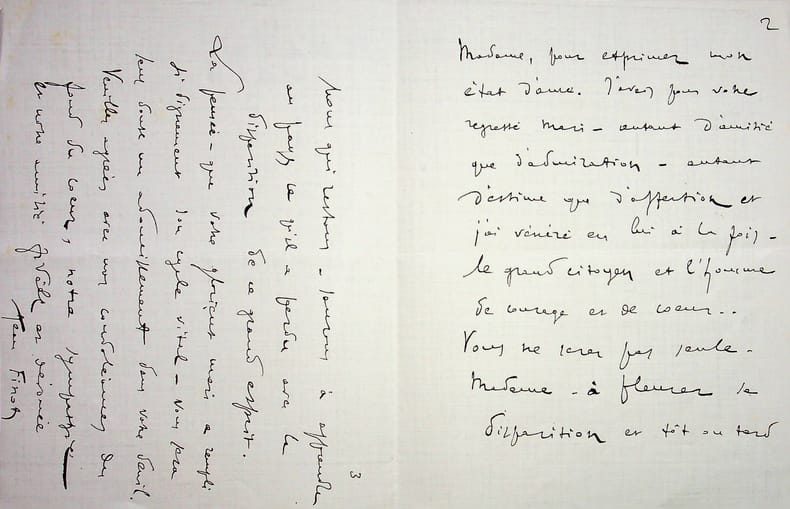 2
Madame, pour exprimer mon
état d'âme. J'avais pour votre
regretté mari - autant d'amitié
que d'admiration - autant
d'estime que d'affection et
j'ai vénéré en lui à la fois -
le grand citoyen et l'homme
de courage et de coeur..
Vous ne serez pas seule -
Madame - à pleurer sa
disparition et tôt ou tard
3
nous qui restons - saurons à apprendre
au pays ce qu'il a perdu avec la
disparition de ce grand esprit.
La pensée - que votre glorieux mari a rempli
si dignement son cycle vital - vous sera
sans doute un adoucissement dans votre deuil.
Veuillez agréer avec nos condoléances du
fond du coeur, notre sympathie
et notre amitié fidèle et dévouée
Jean Finot